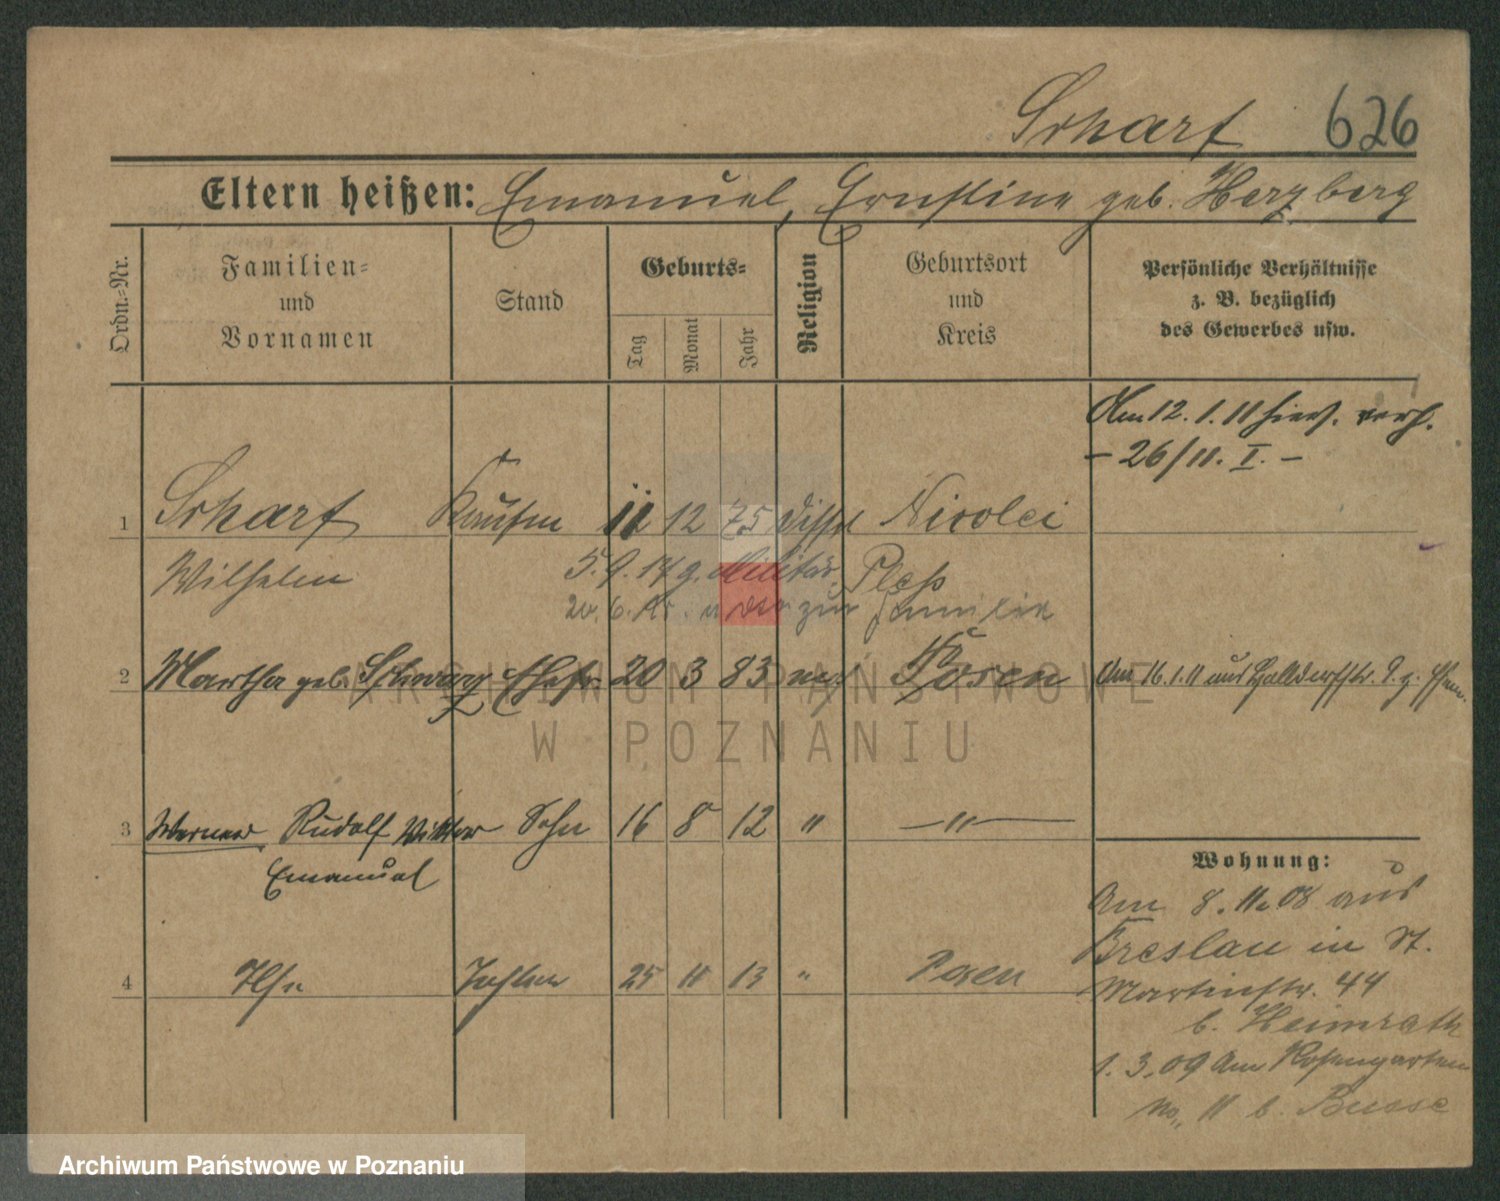 Scharf 626
Eltern heißen: Emanuel, Ernstine geb. Herzberg
Ordn.-Nr.
Familien- und Vornamen
Stand
Geburts-
Tag
Monat
Jahr
Religion
Geburtsort und Kreis
Persönliche Verhältnisse z. B. bezüglich des Gewerbes usw.
Am 12. 1. 11 hier. verh.
- 26/11. I. -
1 Scharf Kaufm 12 75 Nicolei
Wilhelm 5. 9. 14 z. Militär Pleß
20. 6. zur Familie
2 Martha geb. Schwarz Ehefr. 20 3 83 Posen Am 16. 1. 11 aus
3 Werner Rudolf Viktor Sohn 16 8 12 " — " —
Emanuel
4 Ilse Tochter 25 11 13 " Posen
Wohnung:
Am 8. 11. 08 aus
Breslau in St.
Martinstr. 44
b. Heimrath
1. 3. 09 Am Rosengarten
No. 11 b. Busse
ARCHIWUM PAŃSTWOWE
W POZNANIU
Archiwum Państwowe w Poznaniu